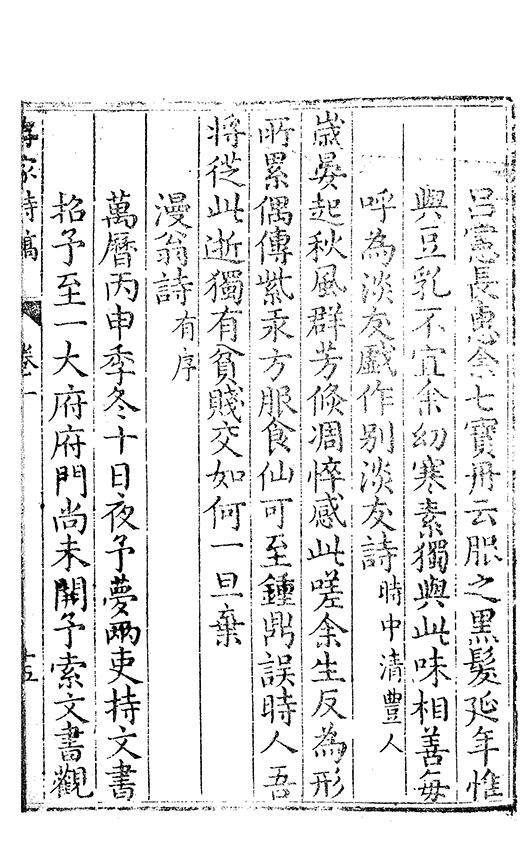 呂憲長惠余七寶丹云服之黑髮延年惟
與豆乳不宜余幼寒素獨與此味相善每
呼為淡友戲作别淡友詩時中清豐人
歲晏起秋風群芳倐凋悴感此嗟余生反為形
所累偶傳紫汞方服食仙可至鍾鼎誤時人吾
將從此逝獨有貧賤交如何一旦棄
漫翁詩有序
萬曆丙申季冬十日夜予夢兩吏持文書
招予至一大府府門尚未開予索文書觀
家詩稿 卷一 十五